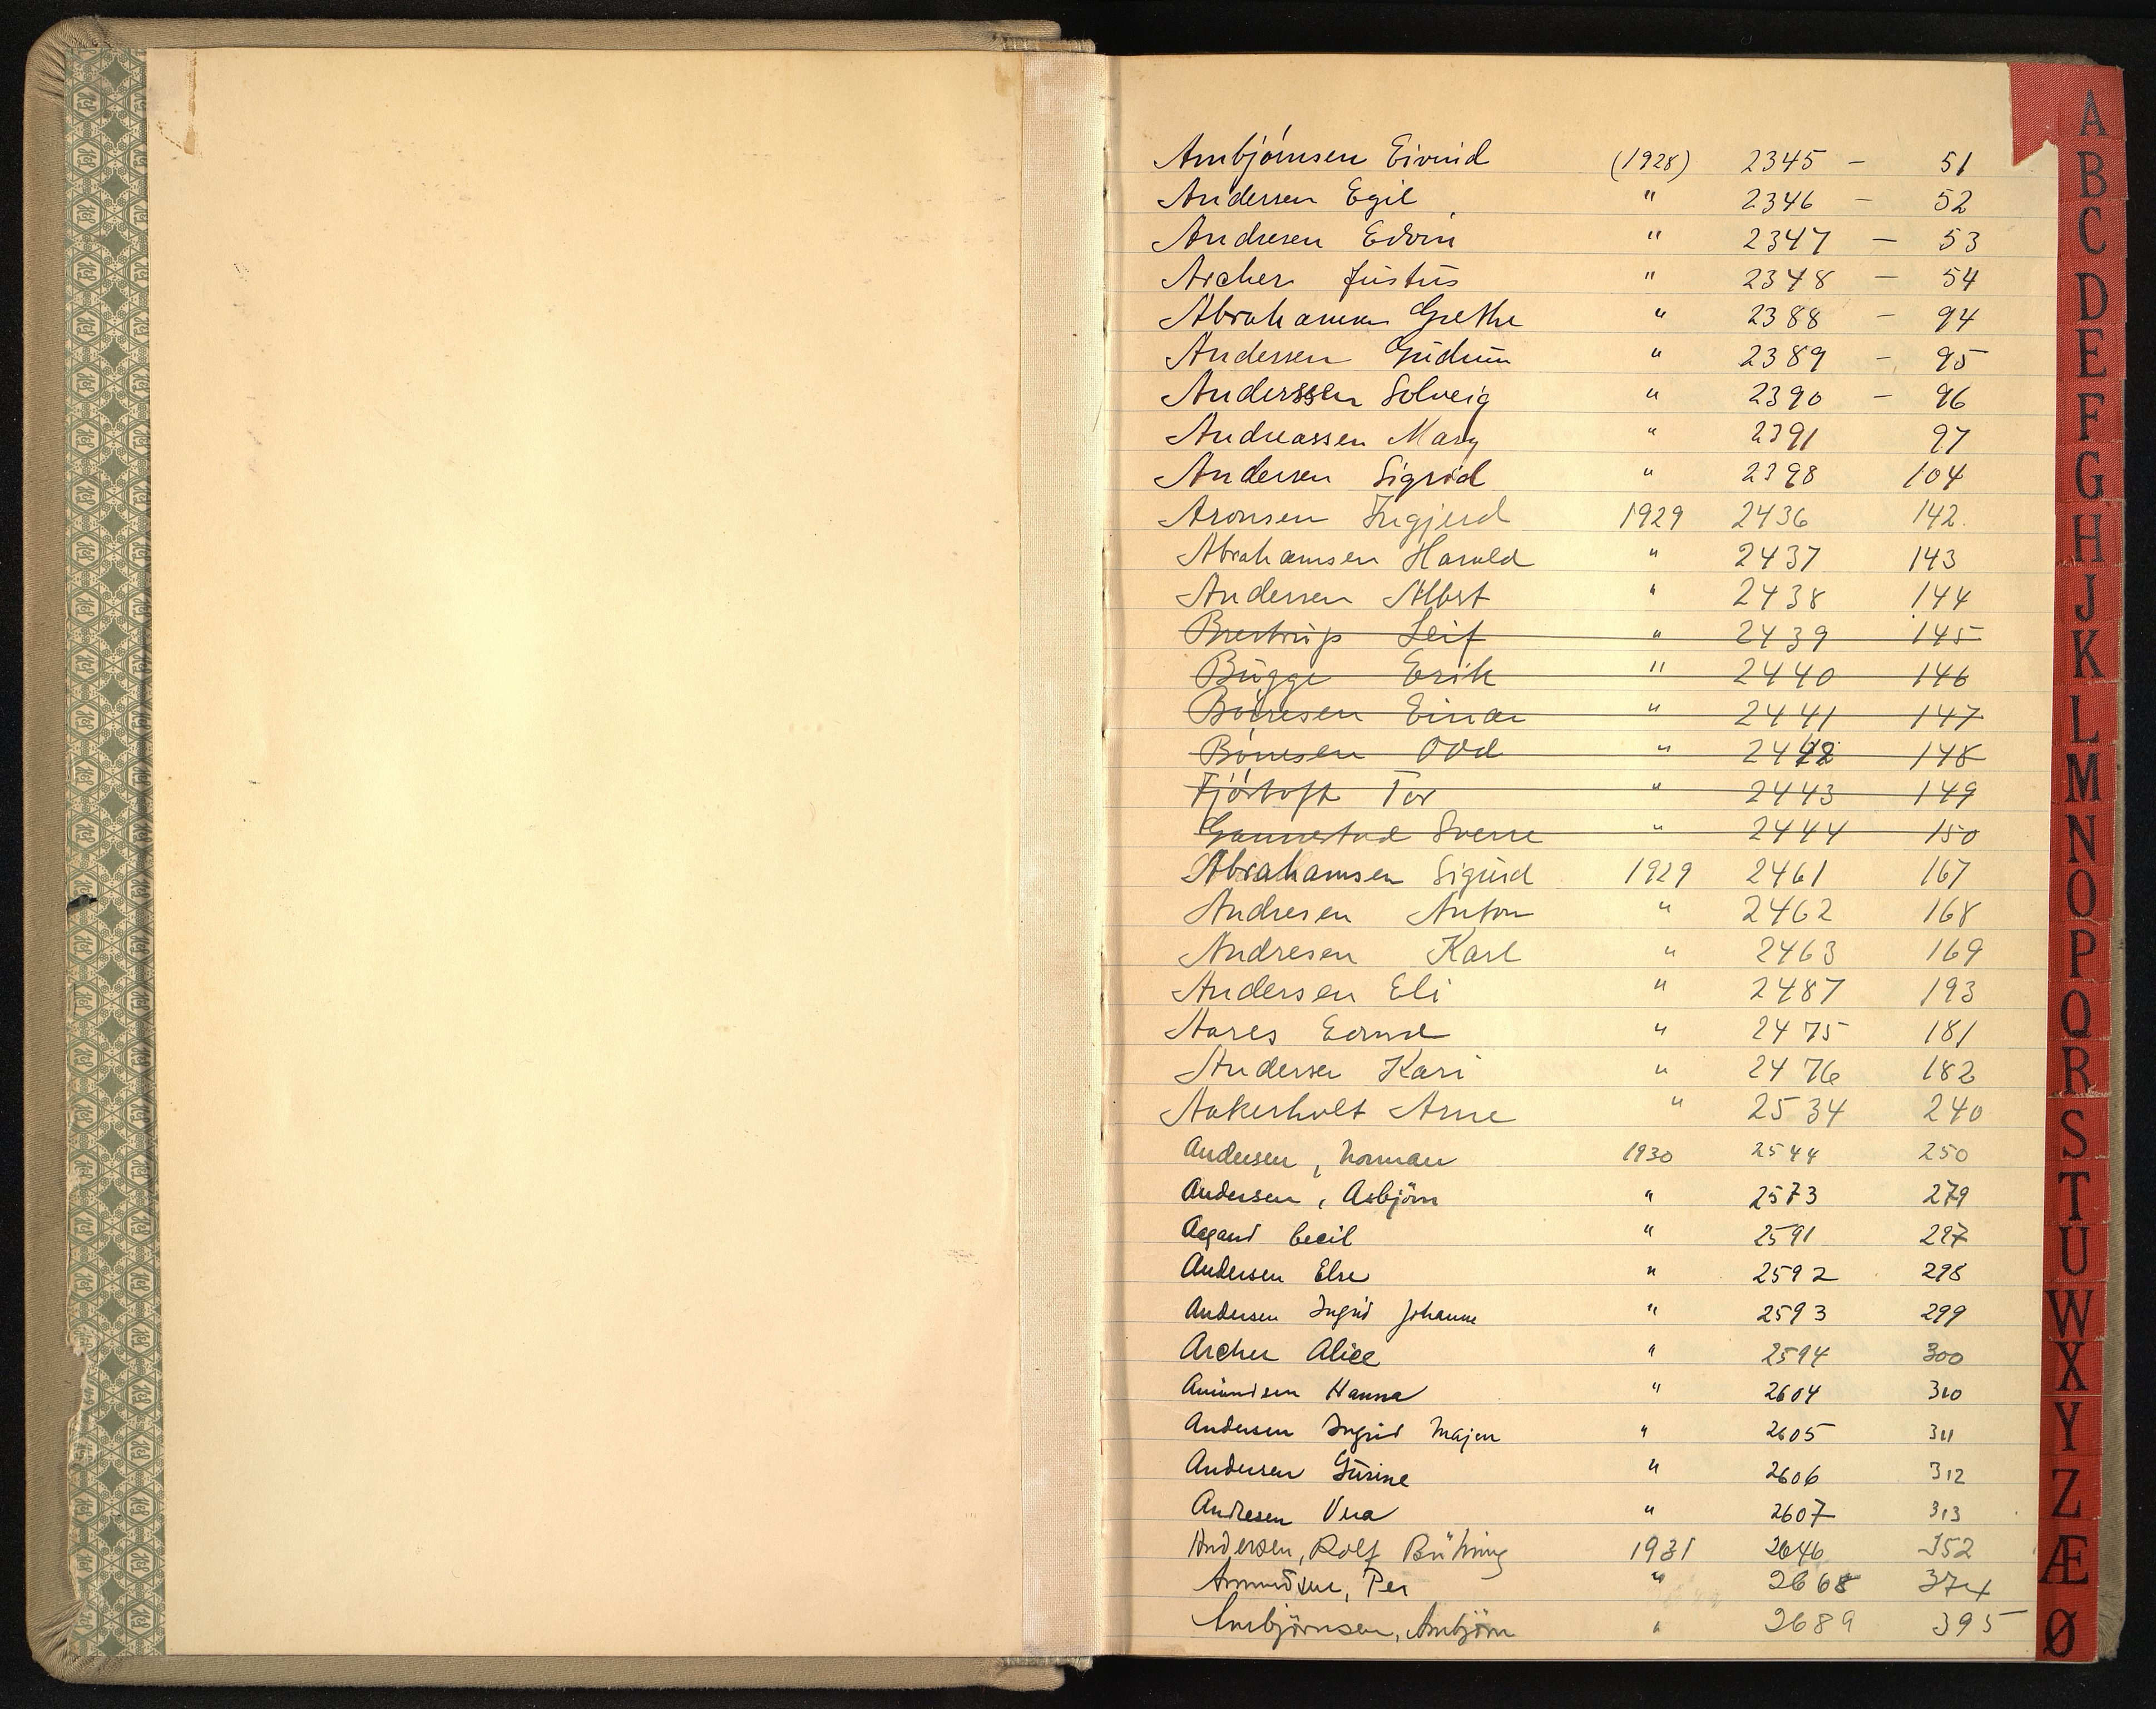 Arnbjørnsen Eivind (1928) 2345 - 51
Andersen Egil " 2346 - 52
Andresen Edvin " 2347 - 53
Archer Justus " 2348 - 54
Abrahamsen Grethe " 2388 - 94
Andersen Gudrun " 2389 - 95
Anderssen Solveig " 2390 - 96
Andreassen Mary " 2391 97
Andersen Sigrid " 2398 104
Aronsen Ingjerd 1929 2436 142.
Abrahamsen Harald " 2437 143
Andersen Albert " 2438 144
Brestrup Leif " 2439 145
Bugge Erik " 2440 146
Børresen Einar " 2441 147
Børresen Odd " 2442 148
Fjørtoft Tor " 2443 149
Gannestad Sverre " 2444 150
Abrahamsen Sigurd 1929 2461 167
Andresen Anton " 2462 168
Andresen Karl " 2463 169
Andersen Eli " 2487 193
Aares " 2475 181
Andersen Kari " 2476 182
Aakerholt Arne " 2534 240
Andersen, Norman 1930 2544 250
Andersen, Asbjörn " 2573 279
Aagaard Cecil " 2591 297
Andersen Else " 2592 298
Andersen Ingrid Johanne " 2593 299
Archer Alice " 2594 300
Amundsen Hanna " 2604 310
Andersen Ingrid Majen " 2605 311
Andersen Gurine " 2606 312
Andresen Vera " 2607 313
Andersen, Rolf 1931 2646 352
Amundsen, Per " 2668 374
Arnbjörnsen, Arnbjörn " 2689 395
A
B
C
D
E
F
G
H
J
K
L
M
N
O
P
Q
R
S
T
U
W
X
Y
Z
Æ
Ø